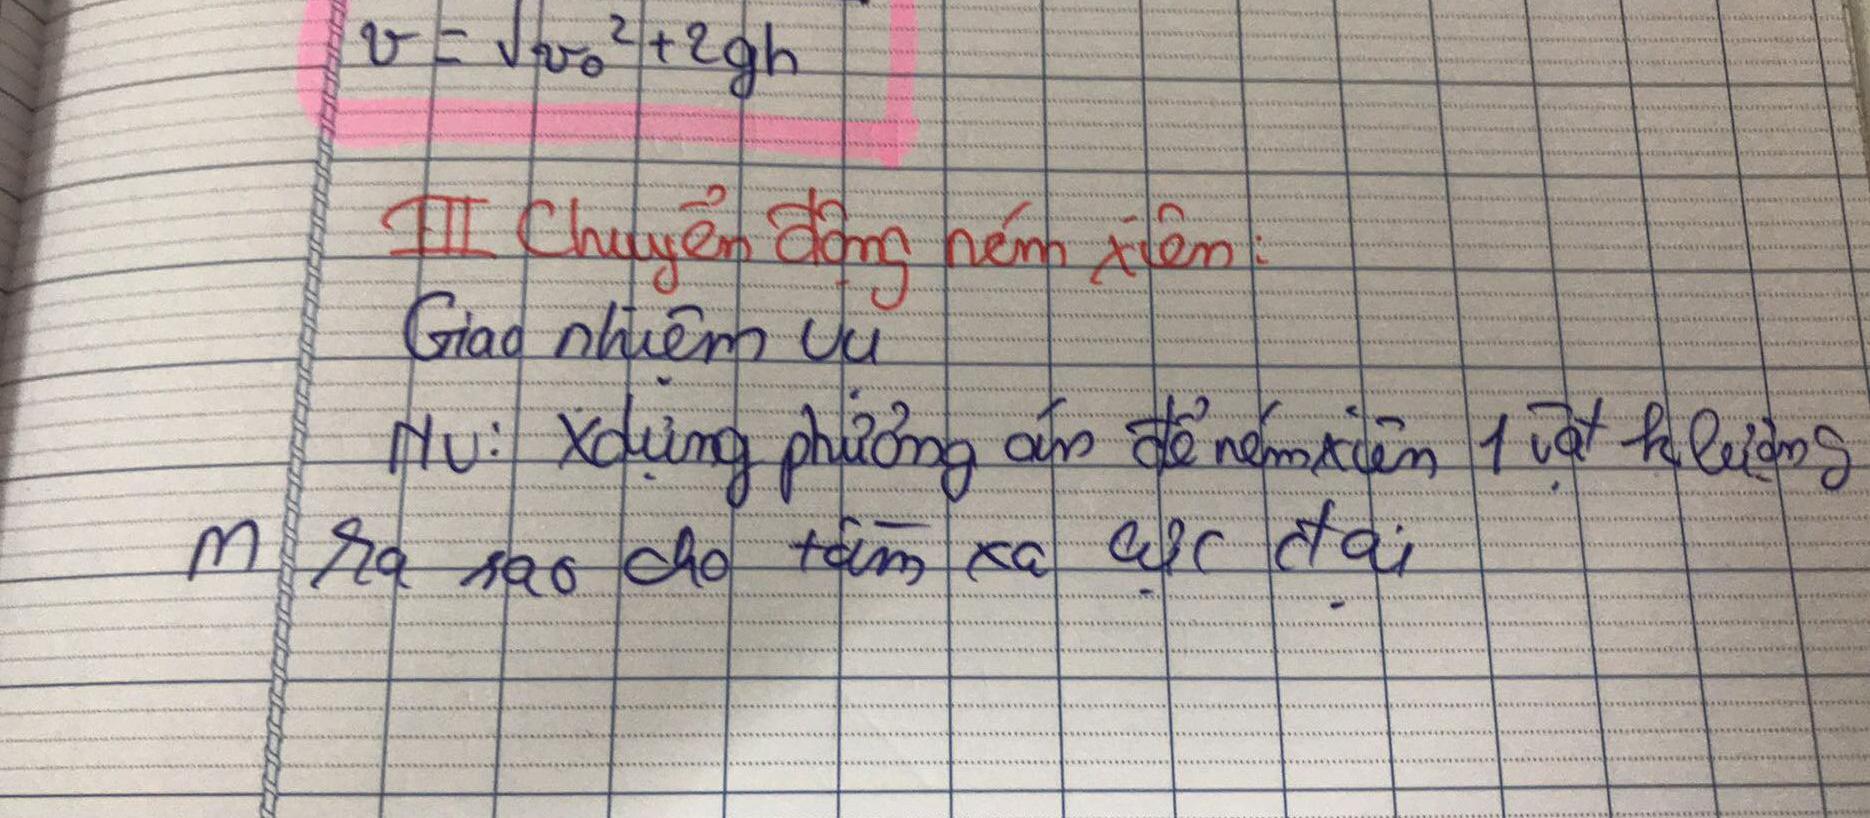 v = √v₀² + 2gh
III Chuyển động ném xiên:
Giao nhiệm vụ
NV: Xdựng phương án để ném xiên 1 vật k lượng
m ra sao cho tầm xa cực đại